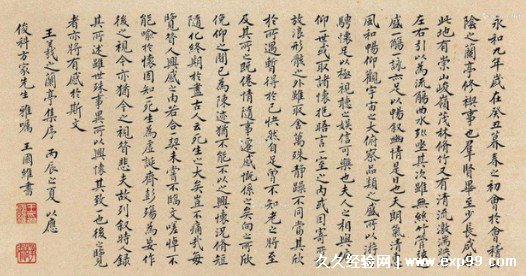 永和九年歲在癸丑暮春之初會於會稽山
陰之蘭亭修稧事也群賢畢至少長咸集
此地有崇山峻嶺茂林脩竹又有清流激湍暎帶
左右引以為流觴曲水列坐其次雖無絲竹管弦之
盛一觴一詠亦足以暢敘幽情是日也天朗氣清惠
風和暢仰觀宇宙之大俯察品類之盛所以遊目
騁懷足以極視聽之娛信可樂也夫人之相與俯
仰一世或取諸懷抱晤言一室之內或因寄所託
放浪形骸之外雖取舍萬殊靜躁不同當其欣
於所遇暫得於己快然自足曾不知老之將至
及其所之既倦情隨事遷感慨係之矣向之所欣
俛仰之間已為陳迹猶不能不以之興懷況脩短
隨化終期於盡古人云死生亦大矣豈不痛哉每
覽昔人興感之由若合一契未嘗不臨文嗟悼不
能喻於懷固知一死生為虛誕齊彭殤為妄作
後之視今亦猶今之視昔悲夫故列敘時人錄
其所述雖世殊事異所以興懷其致一也後之覽
者亦將有感於斯文
王羲之蘭亭集序 丙辰之夏 以應
俊科方家先生雅囑 王國維書
久久经验网
www.exp99.com